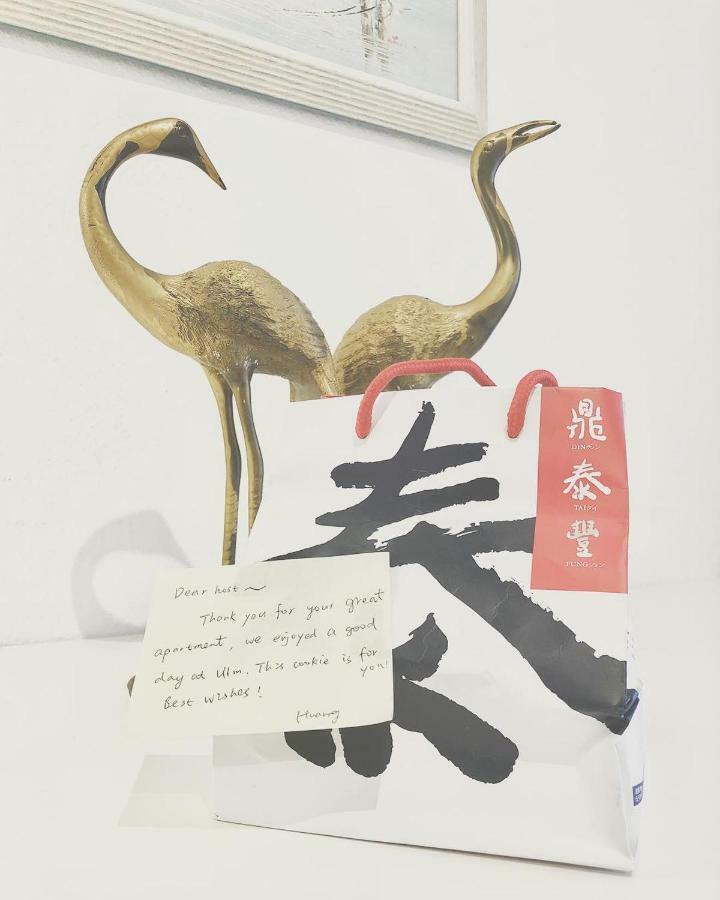 泰
鼎
DINディン
泰
TAIタイ
豐
FUNGフォン
Dear host~
Thank you for your great
apartment, we enjoyed a good
day at Ulm. This cookie is for
you!
Best wishes!
Huang